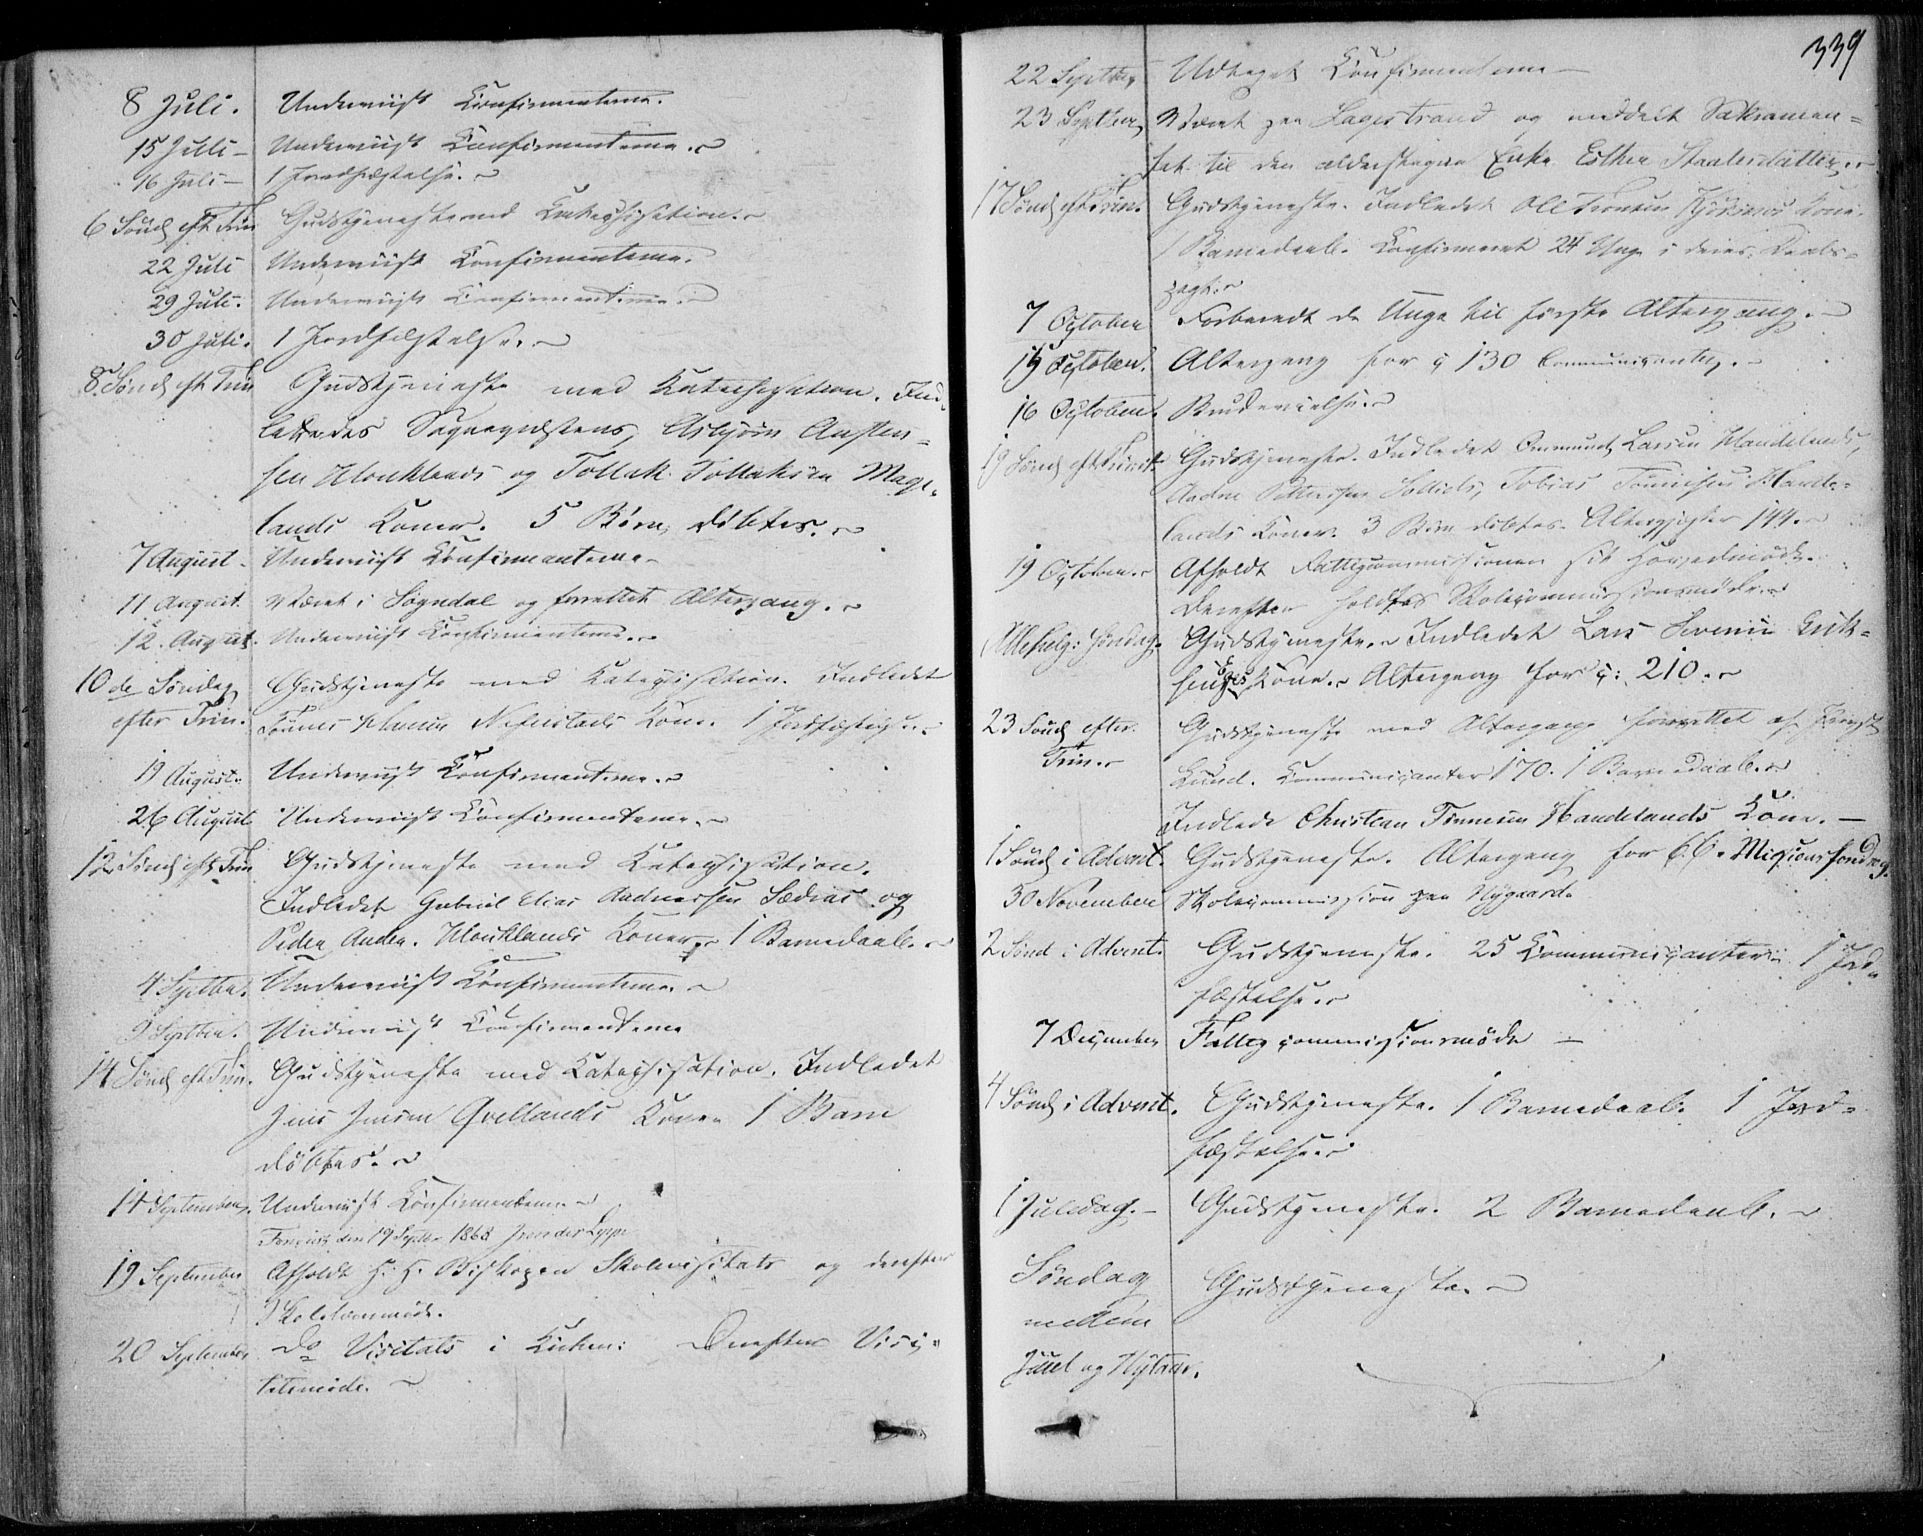 8 Juli. Underviist Confirmanterne.
15 Juli – Underviist Confirmanterne.
16 Juli – 1 Jordfæstelse.
6 Sönd eft Trin Gudstjeneste med Kateqisation.
22 Juli Underviist Confirmanterne.
29 Juli. Underviist Confirmanterne.
30 Juli. 1 Jordfæstelse.
8. Sönd eft Trin Gudstjeneste med Katechisation. Ind-
lededes Asbjörn Austen-
sen Houklands og Tollak Tollaksen
lands Koner. 5 Börn döbtes.
7 August. Underviist Confirmanterne
11 August. Været i Sogndal og forrettet Altergang.
12. August. Underviist Confirmanterne.
10 de Söndag Gudstjeneste med Kateqisation. Indledet
efter Trin. Tönnes Kone. 1 Jordfæstelse.
19 August. Underviist Confirmanterne.
26 August Underviist Confirmanterne.
12 Sönd eft Trin Gudstjeneste med Kateqisation.
Indledet Gabriel Elias Andreassen og
Peder Houklands Koner. 1 Barnedaab.
4 Septbr. Underviist Confirmanterne.
9 Septbr. Underviist Confirmanterne
14 Sönd eft Trin. Gudstjeneste med Kateqisation. Indledet
Jens Jensen Kone. 1 Barn
döbtes.
14 September. Underviist Confirmanterne.
den 19 Septbr 1868
19 September Afholdt H. H. Biskopen Skolevisitats og derefter
Skolelærermöde.
20 September Do Visitats i Kirken. Derefter Visi-
tatsmöde.
339
22 Septbr, Udtaget Confirmanterne –
23 Septbr, Været paa Lagestrand og meddelt Sakramen-
tet til den alderstegne Enke Esther
17 Sönd eft Trin. Gudstjeneste. Indledet Ole Kone.
1 Barnedaab. Confirmeret 24 Unge i deres Daabs-
pagt.
7 October Forberedt de Unge til förste Altergang. –
October. Altergang for 130 Communiqanter.
16 October. Brudevielse.
19 Sönd eft Trinit. Gudstjeneste. Indledet Ommund Larsen Handelands,
Tobias Tönnesen Hande-
lands Koner. 3 Börn döbtes. Altergjester 144.
19 October. Afholdt Fattigcommissionen sit Hovedmöde.
Derefter holdtes Skolecommissionsmöde.
Allehelg: Söndag. Gudstjeneste. Indledet Lars Severin Erik-
sens Kone. Altergang for 210.
23 Sönd efter Gudstjeneste med Altergang forrettet af Provst
Trin. Lund. Kommuniqanter 170. 1 Barnedaab.
Indlede Christian Tönnesen Handelands Kone. –
1 Sönd i Advent. Gudstjeneste. Altergang for 66.
30 November Skolecommission paa Nygaard.
2 Sönd i Advent. Gudstjeneste. 25 Kommuniqanter. 1 Jord-
fæstelse.
7 December Fattigcommissionsmöde –
4 Sönd i Advent. Gudstjeneste. 1 Barnedaab. 1 Jord-
fæstelse.
1 Juledag. – Gudstjeneste. 2 Barnedaab.
Söndag Gudstjeneste.
mellem
Juul og Nytaar.